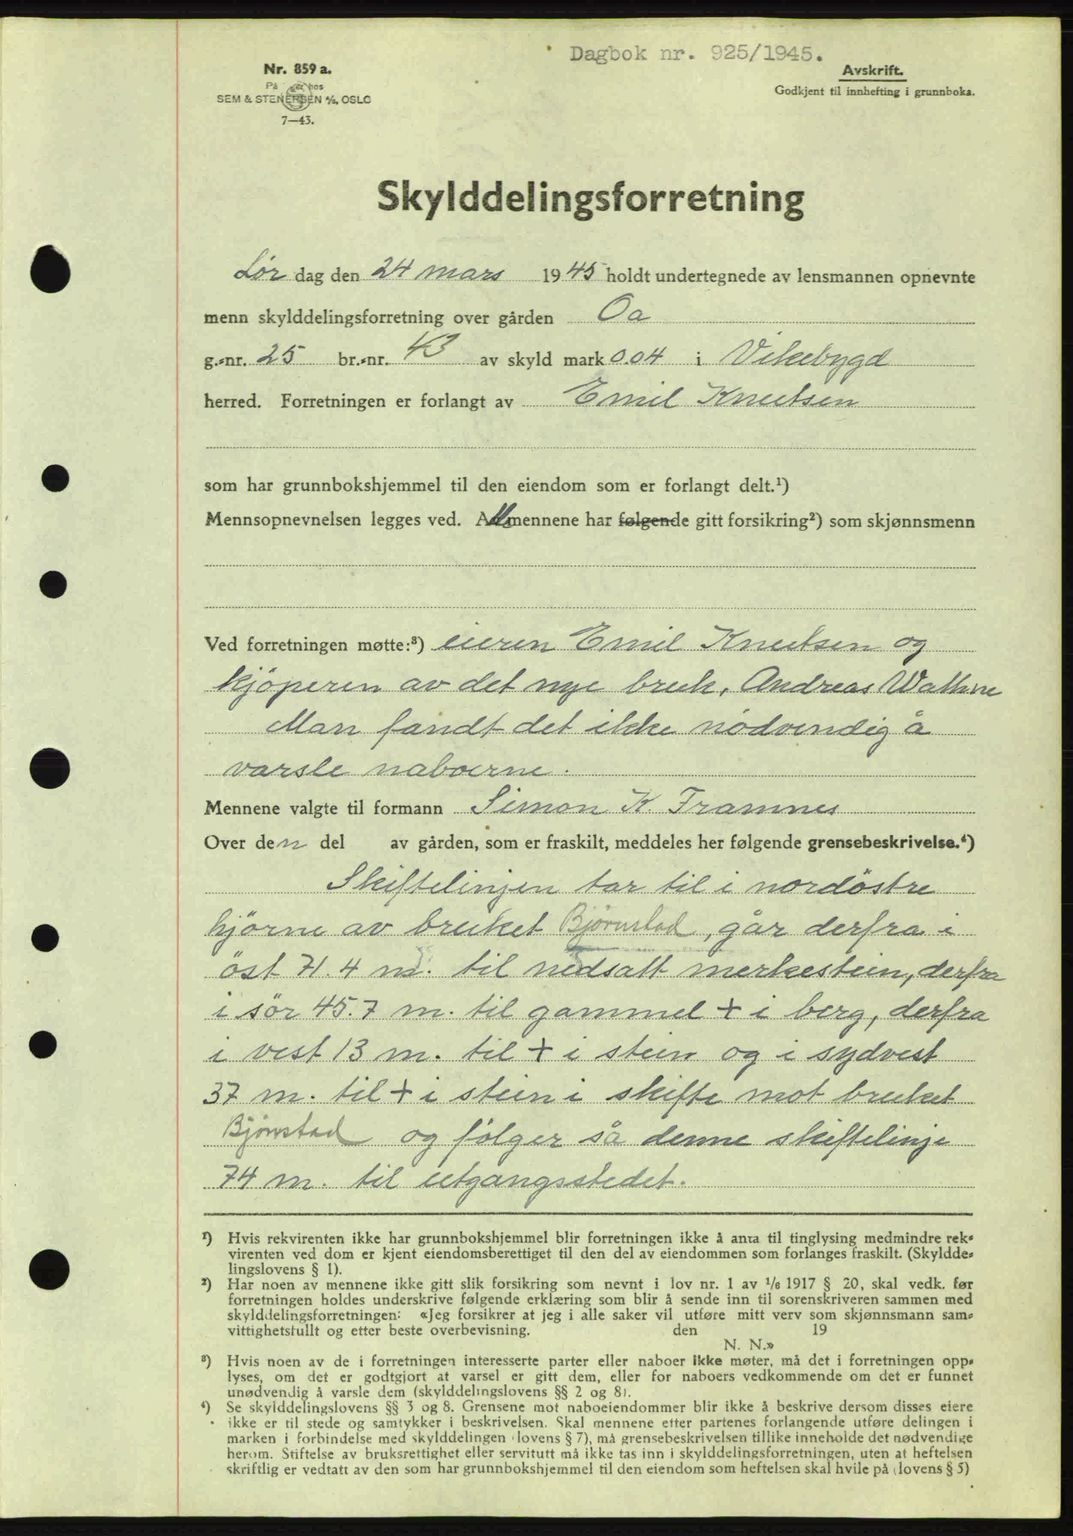 Dagbok nr. 925/1945.
Nr. 859 a.
På lager hos
SEM & STENERSEN A/S, OSLO
7—43.
Avskrift.
Godkjent til innhefting i grunnboka.
Skylddelingsforretning
Lør dag den 24 mars 1945 holdt undertegnede av lensmannen opnevnte
menn skylddelingsforretning over gården Oa
g.-nr. 25 br.-nr. 43 av skyld mark 0.04 i Vikebygd
herred. Forretningen er forlangt av Emil Knutsen
som har grunnbokshjemmel til den eiendom som er forlangt delt.¹)
Mennsopnevnelsen legges ved. Alle mennene har følgende gitt forsikring²) som skjønnsmenn
Ved forretningen møtte:³) eieren Emil Knutsen og
kjöperen av det nye bruk, Andreas Wathne
Man fandt det ikke nödvendig å
varsle naboerne.
Mennene valgte til formann Simon K. Framnes
Over den del av gården, som er fraskilt, meddeles her følgende grensebeskrivelse.⁴)
Skiftelinjen tar til i nordöstre
hjörne av bruket Bjørnstad, går derfra i
öst 71.4 m. til nedsatt merkestein, derfra
i sör 45.7 m. til gammel + i berg, derfra
i vest 13 m. til + i stein og i sydvest
37 m. til + i stein i skifte mot bruket
Bjørnstad og fölger så denne skiftelinje
74 m. til utgangsstedet.
¹) Hvis rekvirenten ikke har grunnbokshjemmel blir forretningen ikke å anta til tinglysing medmindre rek-
virenten ved dom er kjent eiendomsberettiget til den del av eiendommen som forlanges fraskilt. (Skyldde-
lingslovens § 1).
²) Har noen av mennene ikke gitt slik forsikring som nevnt i lov nr. 1 av ¹/₆ 1917 § 20, skal vedk. før
forretningen holdes underskrive følgende erklæring som blir å sende inn til sorenskriveren sammen med
skylddelingsforretningen: «Jeg forsikrer at jeg i alle saker vil utføre mitt verv som skjønnsmann sam-
vittighetsfullt og etter beste overbevisning. den 19
N. N.»
³) Hvis noen av de i forretningen interesserte parter eller naboer ikke møter, må det i forretningen opp-
lyses, om det er godtgjort at varsel er gitt dem, eller for naboers vedkommende om det er funnet
unødvendig å varsle dem (skylddelingslovens §§ 2 og 8).
⁴) Se skylddelingslovens §§ 3 og 8. Grensene mot naboeiendommer blir ikke å beskrive dersom disses eiere
ikke er til stede og samtykker i beskrivelsen. Skal mennene etter partenes forlangende utføre delingen i
marken i forbindelse med skylddelingen (lovens § 7), må grensebeskrivelsen tillike inneholde det nødvendige
herom. Stiftelse av bruksrettighet eller servitutt må ikke tas inn i skylddelingsforretningen, uten at heftelsen
skriftlig er vedtatt av den som har grunnbokshjemmel til den eiendom som heftelsen skal hvile på (lovens § 5)